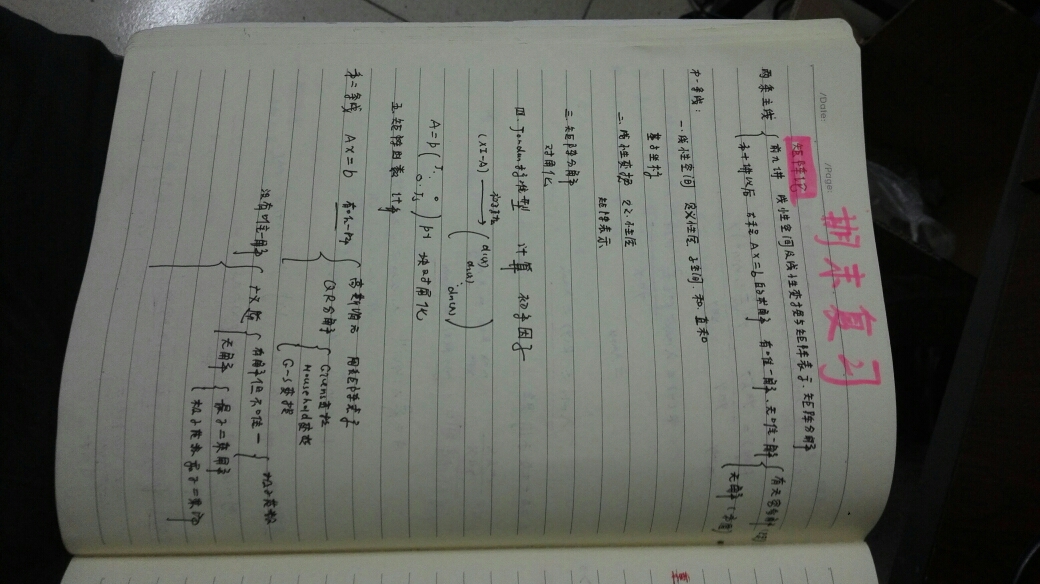 /Date: /Page: 期末复习
矩阵论
两条主线 前九讲 线性空间及线性变换与矩阵表示.矩阵分解
第十讲以后 方程 Ax=b 的求解 有唯一解.无唯一解 有无穷多解
无解
第一条线:
一.线性空间 定义性质 子空间.和.直和
基与坐标
二.线性变换 定义.性质
矩阵表示
三.矩阵分解
对角化
四.Jordan标准型 计算 初等因子
(λI-A) → ( d1(λ)
d2(λ)
⋱ dn(λ) )
A=P ( J1 ⋱ 0
0 Js ) P-1 块对角化
五.矩阵函数 计算
第二条线 Ax=b 有唯一解 高斯消元 用矩阵表示
QR分解 Givens变换
Household变换
G-S变换
没有唯一解 广义逆 有解但不唯一 极小范数
无解 最小二乘解
极小范数最小二乘解